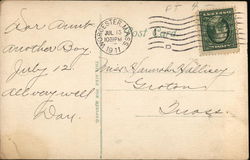 WORCESTER, MASS.
JUL 13
1030PM
1911
Post Card
Dear Aunt
another Boy.
July 12
All very well
Day.
Miss Hannah
Groton
Mass.